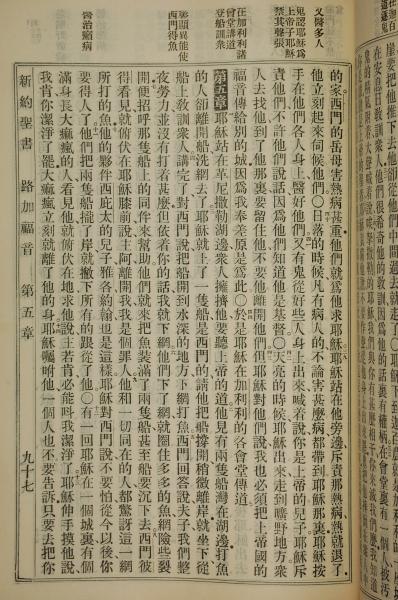 又醫多人
鬼認耶穌爲上帝子耶穌禁其聲張
在加利利諸會堂講道
登船訓衆
彰顯異能使西門得魚
醫治癩病
的家西門的岳母害熱病甚重他們就爲他求耶穌耶穌站在他旁邊斥責那熱病熱就退了
他立刻起來伺候他們〇日落的時候凡有病人的不論害甚麼病都帶到耶穌那裏耶穌按
手在他們各人身上醫好他們又有鬼從好些人身上出來喊着說你是上帝的兒子耶穌斥
責他們不許他們說話因爲他們知道他是基督〇天亮的時候耶穌出來走到曠野地方衆
人去找他到了他那裏要留住他不要他離開他們但耶穌對他們說我也必須把上帝國的
福音傳給別的城因爲我奉差原是爲此〇於是耶穌在加利利的各會堂傳道
第五章 耶穌站在革尼撒勒湖邊衆人擁擠他要聽上帝的道他見有兩隻船灣在湖邊打魚
的人卻離開船洗網去了耶穌就上了一隻船是西門的請他把船撐開稍微離岸就坐下從
船上教訓衆人講完了對西門說把船開到水深的地方下網打魚西門回答說夫子我們整
夜勞力並沒有打着甚麼但依着你的話我就下網他們下了網就圈住多多的魚網險些裂
開便招呼那隻船上的同伴來幫助他們就來把魚裝滿了兩隻船甚至船要沉下去西門彼
得看見就俯伏在耶穌膝前說主阿離開我我是個罪人他和一切同在的人都驚訝這一網
所打的魚他的夥伴西庇太的兒子雅各約翰也是這樣耶穌對西門說不要怕從今以後你
要得人了他們把兩隻船攏了岸就撇下所有的跟從了他〇有一回耶穌在一個城裏有個
滿身長大痲瘋的人看見他就俯伏在地求他說主若肯必能叫我潔淨了耶穌伸手摸他說
我肯你潔淨了罷大痲瘋立刻就離了他的身耶穌囑咐他一個人也不要告訴只要去把你
新約聖書 路加福音 第五章 九十七